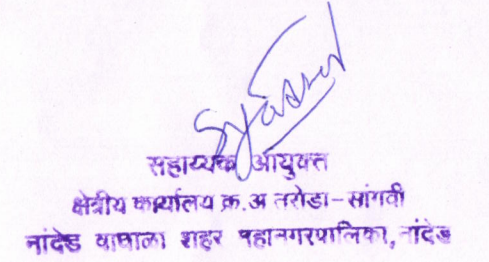 सहाय्यक आयुक्त
क्षेत्रीय कार्यालय क्र.अ तरोडा-सांगवी
नांदेड वाघाळा शहर महानगरपालिका, नांदेड